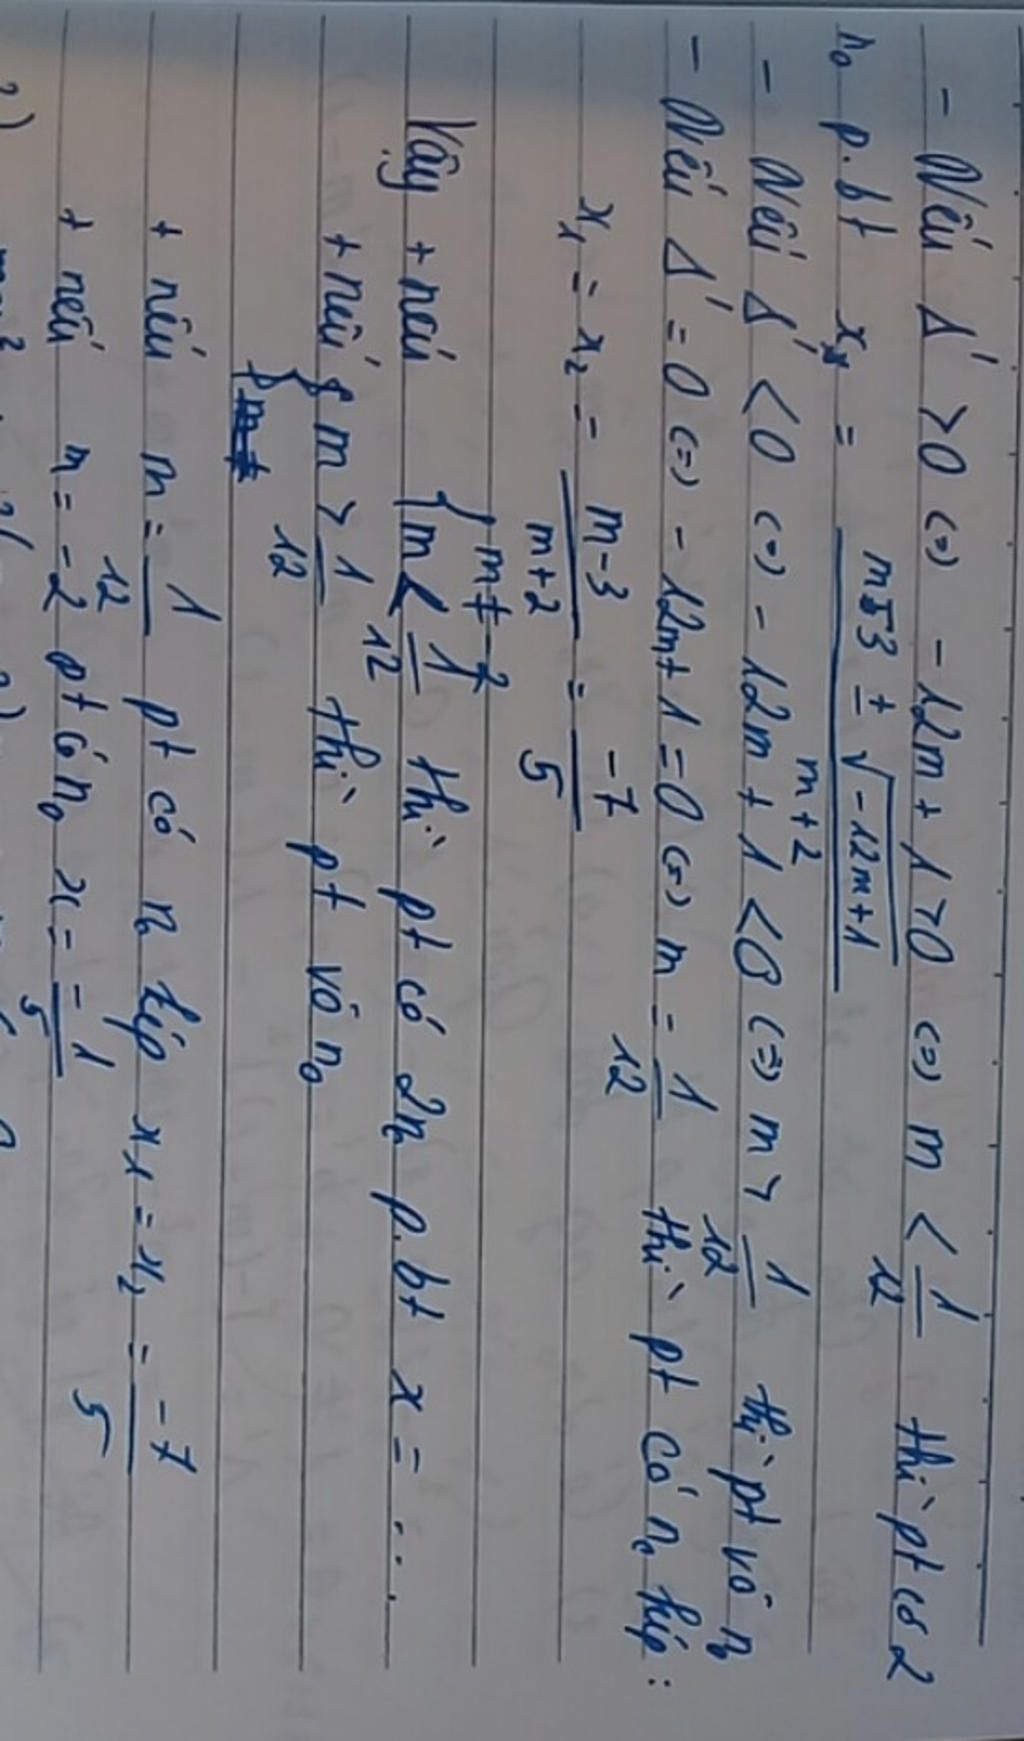 - Nếu Δ' > 0 (=) - 12m + 1 > 0 (=) m < 1/12 thì pt có 2
n₀ p.bt x = (m - 3 ± √(-12m+1))/(m+2)
- Nếu Δ' < 0 (=) - 12m + 1 < 0 (=) m > 1/12 thì pt vô n₀
- Nếu Δ' = 0 (=) - 12m + 1 = 0 (=) m = 1/12 thì pt có n₀ kép :
x₁ = x₂ = (m-3)/(m+2) = -7/5
Vậy + nếu { m ≠ -2
{ m < 1/12 thì pt có 2n₀ p.bt x = ....
+ nếu m > 1/12 thì pt vô n₀
+ nếu m = 1/12 pt có n₀ kép x₁ = x₂ = -7/5
+ nếu m = -2 pt có n₀ x = -1/5